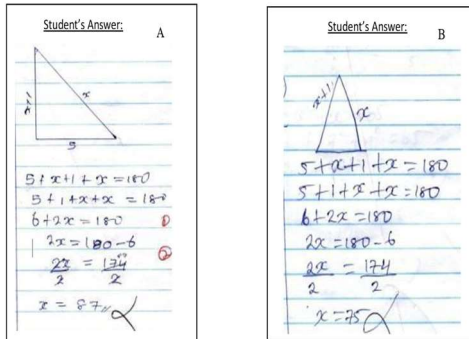 Student's Answer:
A
x
5
5 + x + 1 + x = 180
5 + 1 + x + x = 180
6 + 2x = 180
1
2x = 180 - 6
2
2x/2 = 174/2
x = 87,,
Student's Answer:
B
x+1
x
5 + x + 1 + x = 180
5 + 1 + x + x = 180
6 + 2x = 180
2x = 180 - 6
2x/2 = 174/2
x = 75